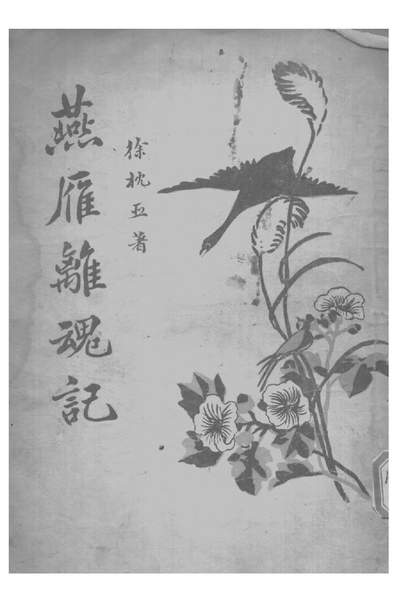 燕雁離魂記
徐枕亞著